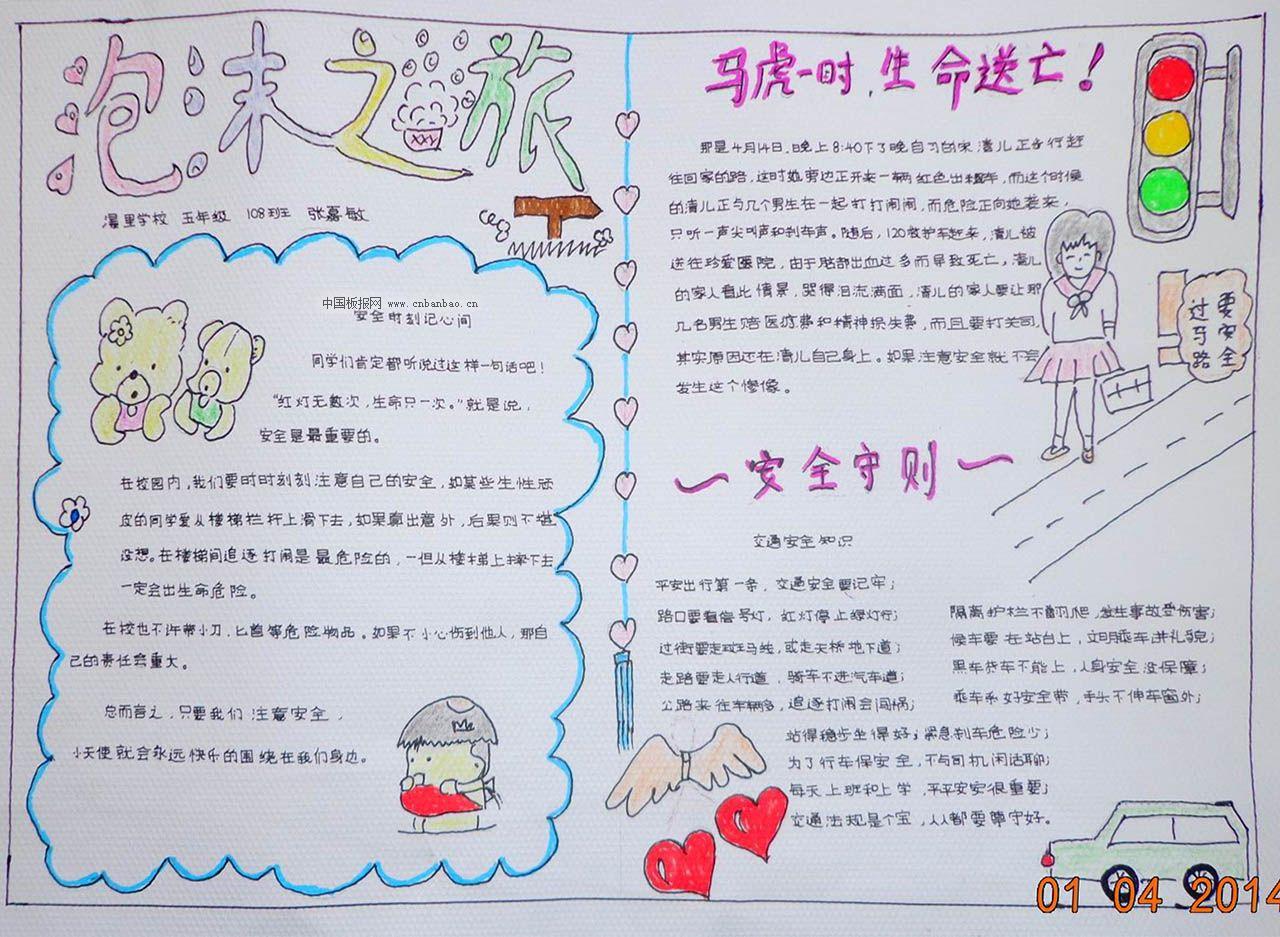 泡沫之旅
XXY
漫里学校 五年级 108班 张嘉敏
中国板报网 www.cnbanbao.cn
安全时刻记心间
同学们肯定都听说过这样一句话吧!
“红灯无数次,生命只一次。”就是说,
安全是最重要的。
在校园内,我们要时时刻刻注意自己的安全,如某些生性顽
皮的同学爱从楼梯栏杆上滑下去,如果真出意外,后果则不堪
设想。在楼梯间追逐打闹是最危险的,一但从楼梯上摔下去
一定会出生命危险。
在校也不许带小刀、匕首等危险物品。如果不小心伤到他人,那自
己的责任会重大。
总而言之,只要我们注意安全,
小天使就会永远快乐的围绕在我们身边。
马虎一时,生命送亡!
那是4月14日,晚上8:40下了晚自习的宋清儿正步行赶
往回家的路,这时她旁边正开来一辆红色出租车,而这个时候
的清儿正与几个男生在一起打打闹闹,而危险正向她袭来,
只听一声尖叫声和刹车声。随后,120救护车赶来,清儿被
送往珍爱医院,由于局部出血过多而导致死亡,清儿
的家人看此情景,哭得泪流满面,清儿的家人要让那
几名男生赔医疗费和精神损失费,而且要打关司,
其实原因还在清儿自己身上。如果注意安全就不会
发生这个惨像。
要安全
过马路
安全守则
交通安全知识
平安出行第一条,交通安全要记牢;
路口要看信号灯,红灯停止绿灯行;
过街要走斑马线,或走天桥地下道;
走路要走人行道,骑车不进汽车道;
公路来往车辆多,追逐打闹会闯祸;
隔离护栏不翻爬,发生事故受伤害;
候车要在站台上,文明乘车讲礼貌;
黑车货车不能上,人身安全没保障;
乘车系好安全带,手头不伸车窗外;
站得稳步坐得好;紧急刹车危险少;
为了行车保安全,不与司机闲话聊;
每天上班和上学,平平安安很重要;
交通法规是个宝,人人都要尊守好。
01 04 2014